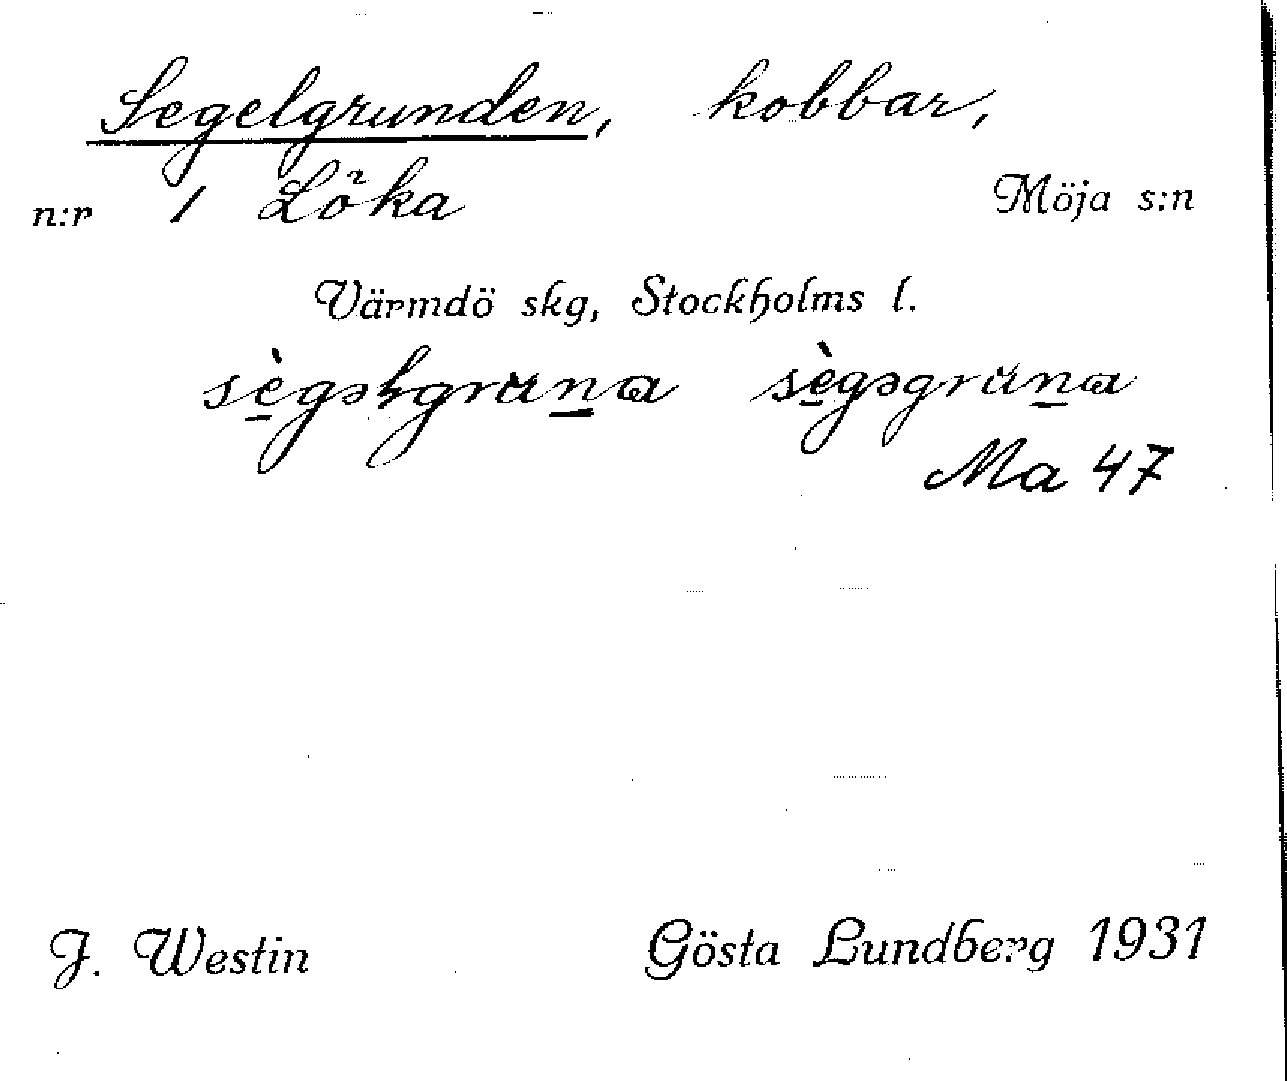 Segelgrunden, kobbar,
n:r 1 Löka Möja s:n
Värmdö skg, Stockholms l.
sègəɫgrüṉa sègəgrüṉa
Ma 47
J. Westin Gösta Lundberg 1931